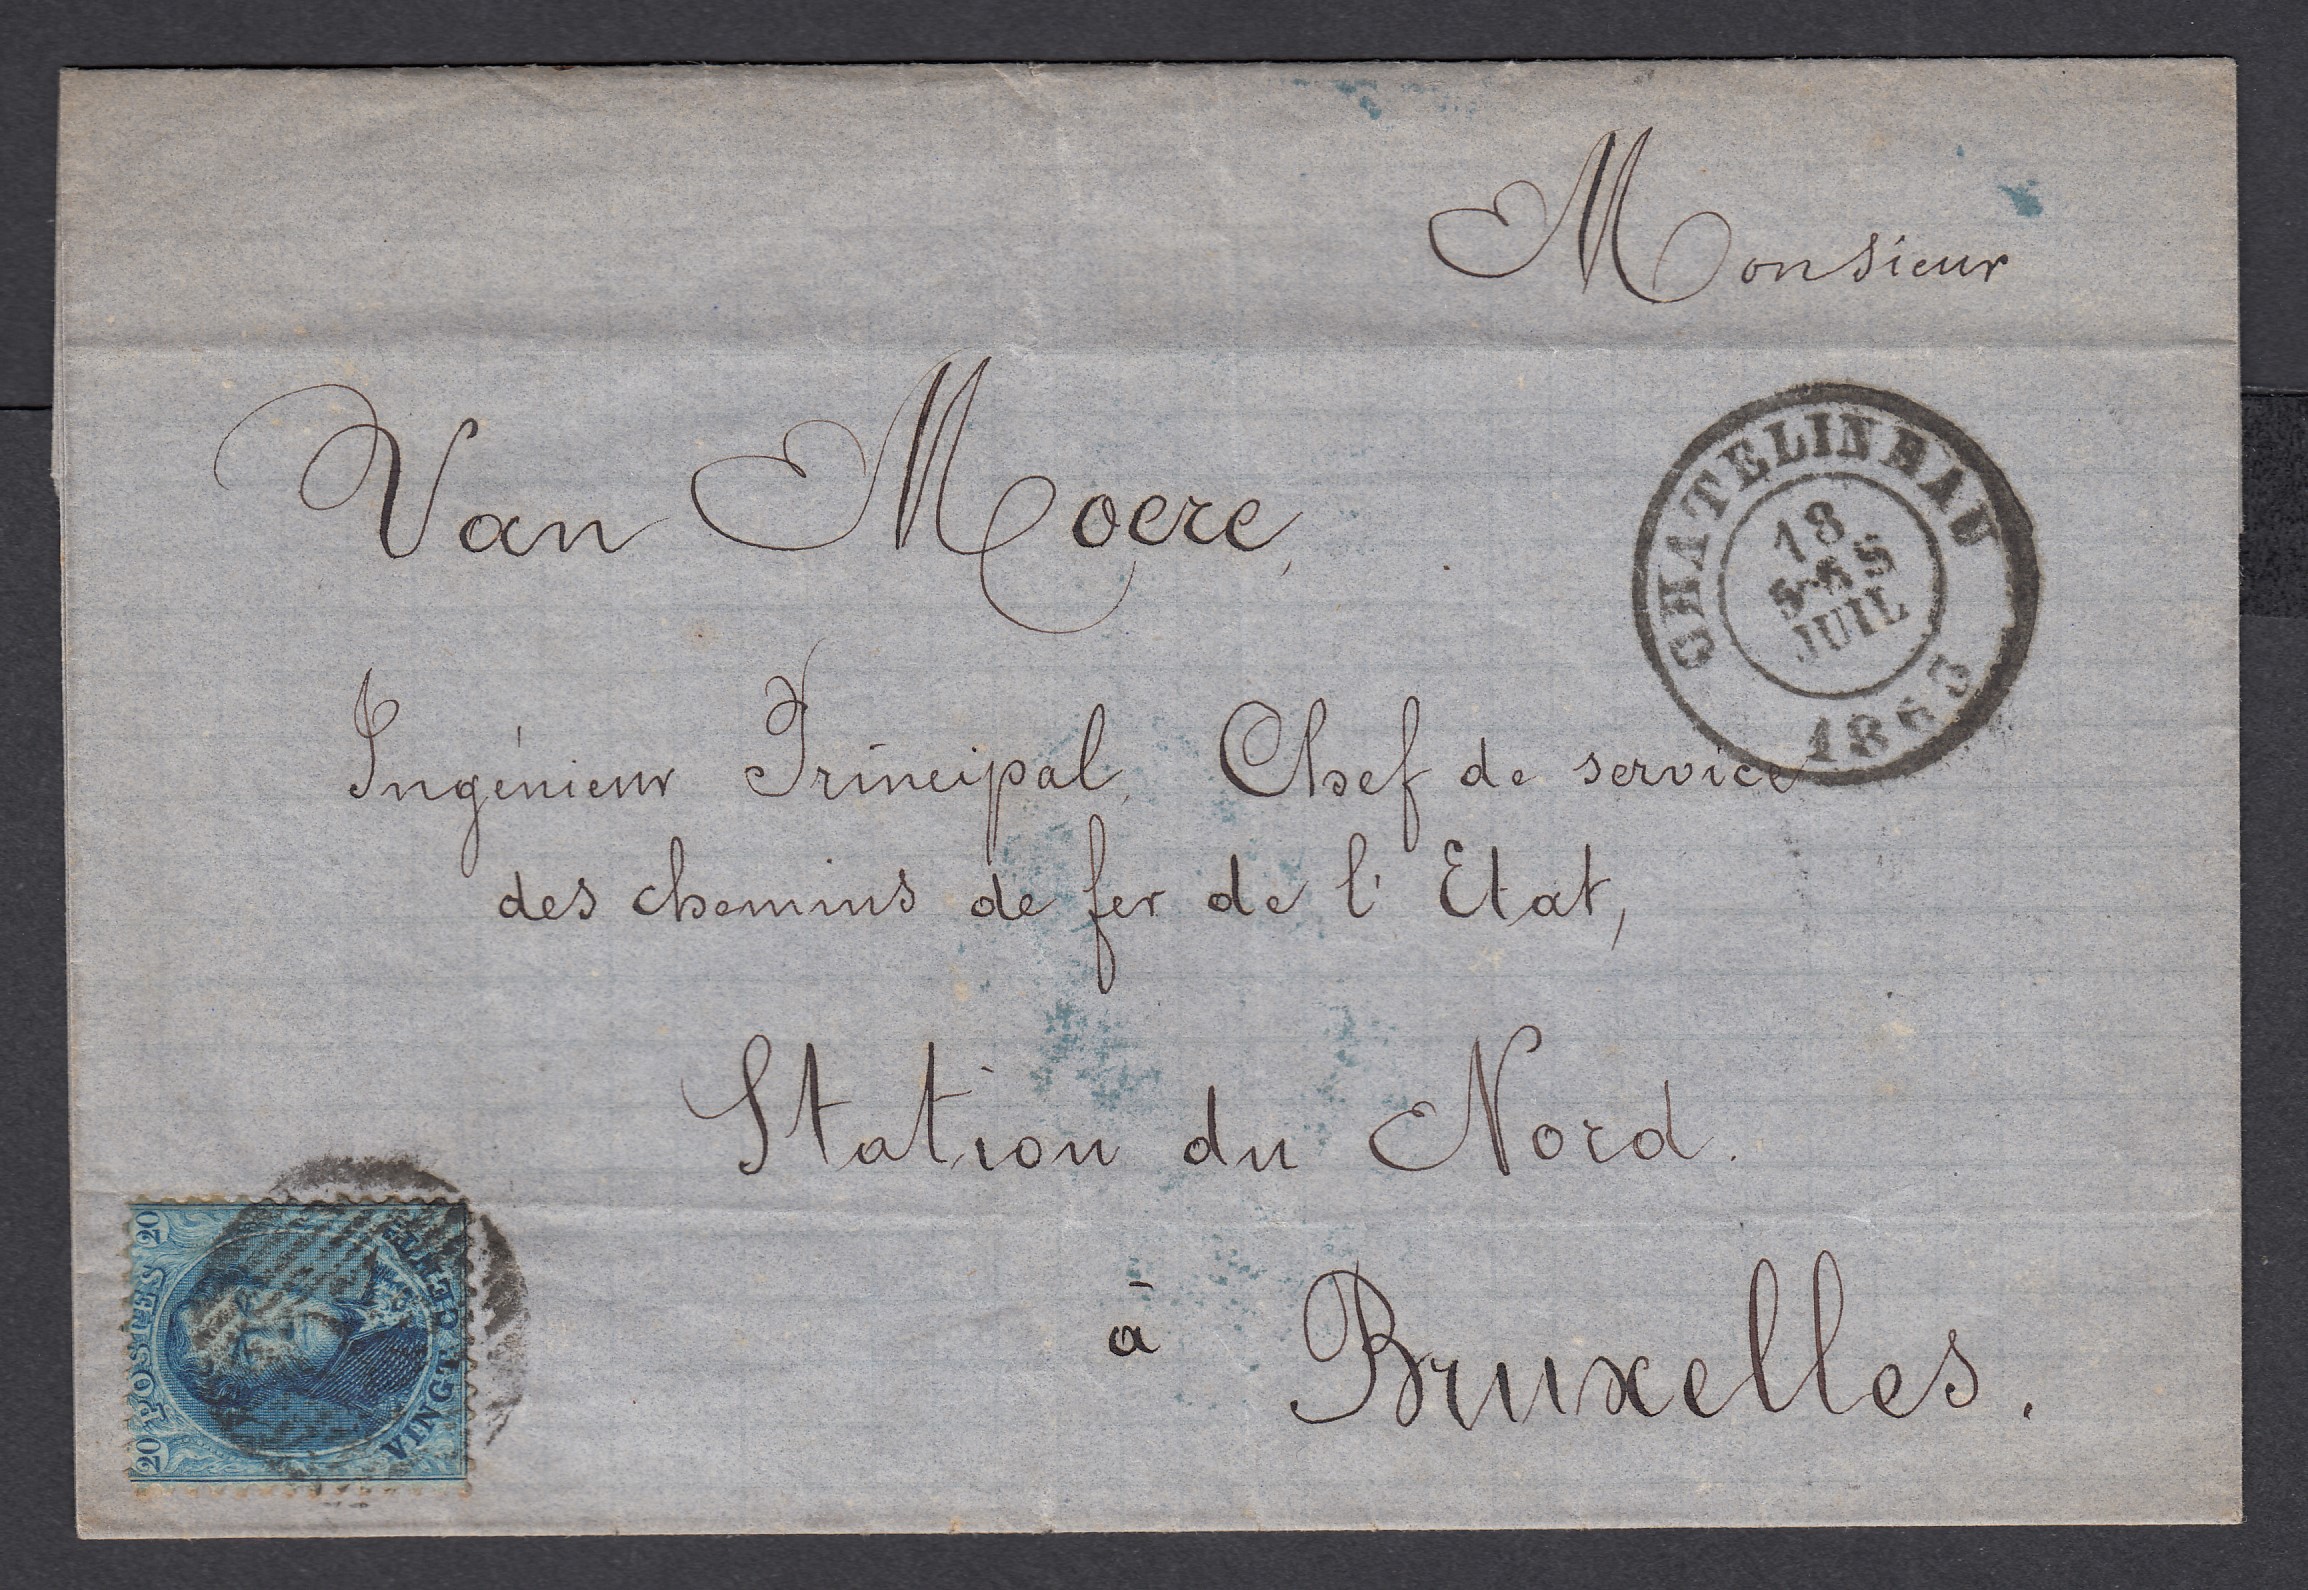 Monsieur
Van Moere,
CHATELINEAU
18
5-6 S
JUIL
1863
Ingénieur Principal, Chef de service
des chemins de fer de l'Etat,
Station du Nord.
à Bruxelles.
20 POSTES 20
VINGT CENTIMES